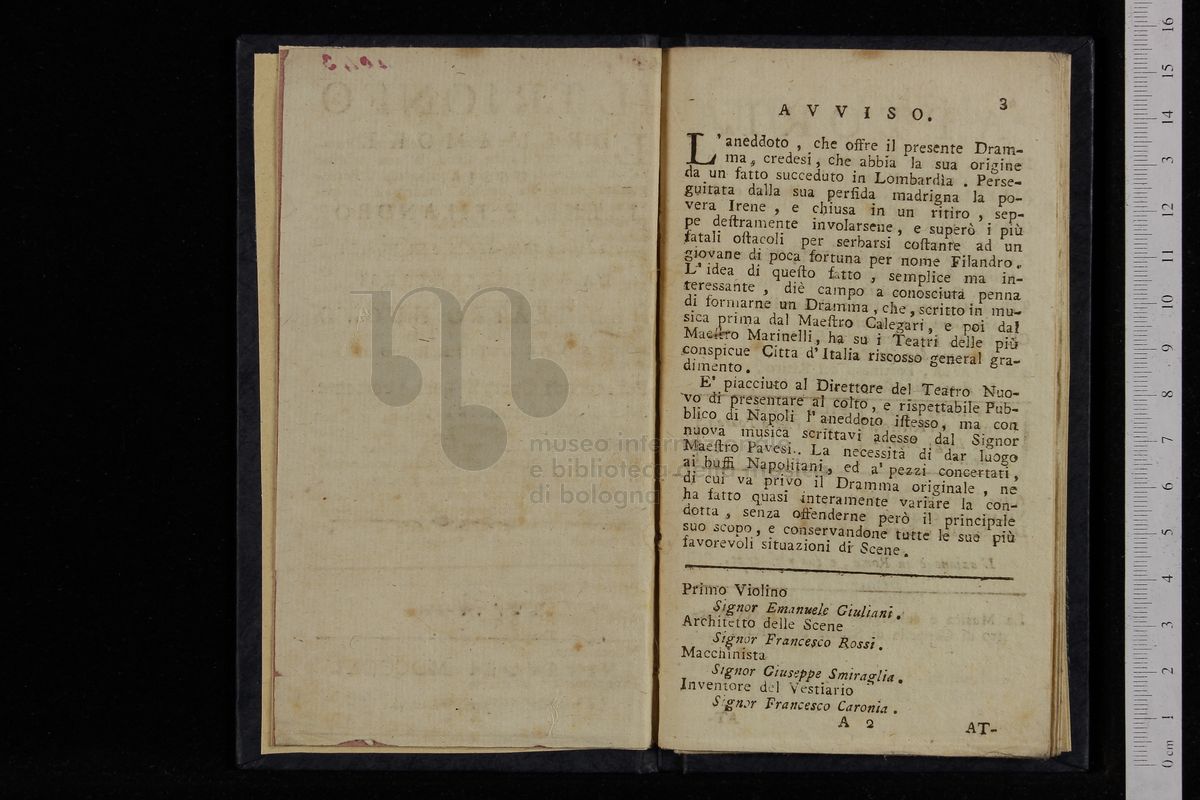 3
AVVISO.
L'aneddoto , che offre il presente Dram-
ma, credesi, che abbia la sua origine
da un fatto succeduto in Lombardìa . Perse-
guitata dalla sua perfida madrigna la po-
vera Irene , e chiusa in un ritiro , sep-
pe deſtramente involarsene , e superò i più
fatali oſtacoli per serbarsi coſtante ad un
giovane di poca fortuna per nome Filandro.
L'idea di queſto fatto , semplice ma in-
teressante , diè campo a conosciuta penna
di formarne un Dramma , che , scritto in mu-
sica prima dal Maeſtro Calegari, e poi dal
Maeſtro Marinelli, ha su i Teatri delle più
conspicue Citta d'Italia riscosso general gra-
dimento.
E' piacciuto al Direttore del Teatro Nuo-
vo di presentare al colto, e rispettabile Pub-
blico di Napoli l'aneddoto iſtesso, ma con
nuova musica scrittavi adesso dal Signor
Maeſtro Pavesi.. La necessità di dar luogo
ai buffi Napolitani, ed a' pezzi concertati,
di cui va privo il Dramma originale , ne
ha fatto quasi interamente variare la con-
dotta , senza offenderne però il principale
suo scopo, e conservandone tutte le sue più
favorevoli situazioni di Scene.
Primo Violino
Signor Emanuele Giuliani.
Architetto delle Scene
Signor Francesco Rossi.
Macchinista
Signor Giuseppe Smiraglia.
Inventore del Vestiario
Signor Francesco Caronia .
A 2
AT-
museo internazionale
e biblioteca della musica
di bologna
0 cm 1 2 3 4 5 6 7 8 9 10 11 12 13 14 15 16